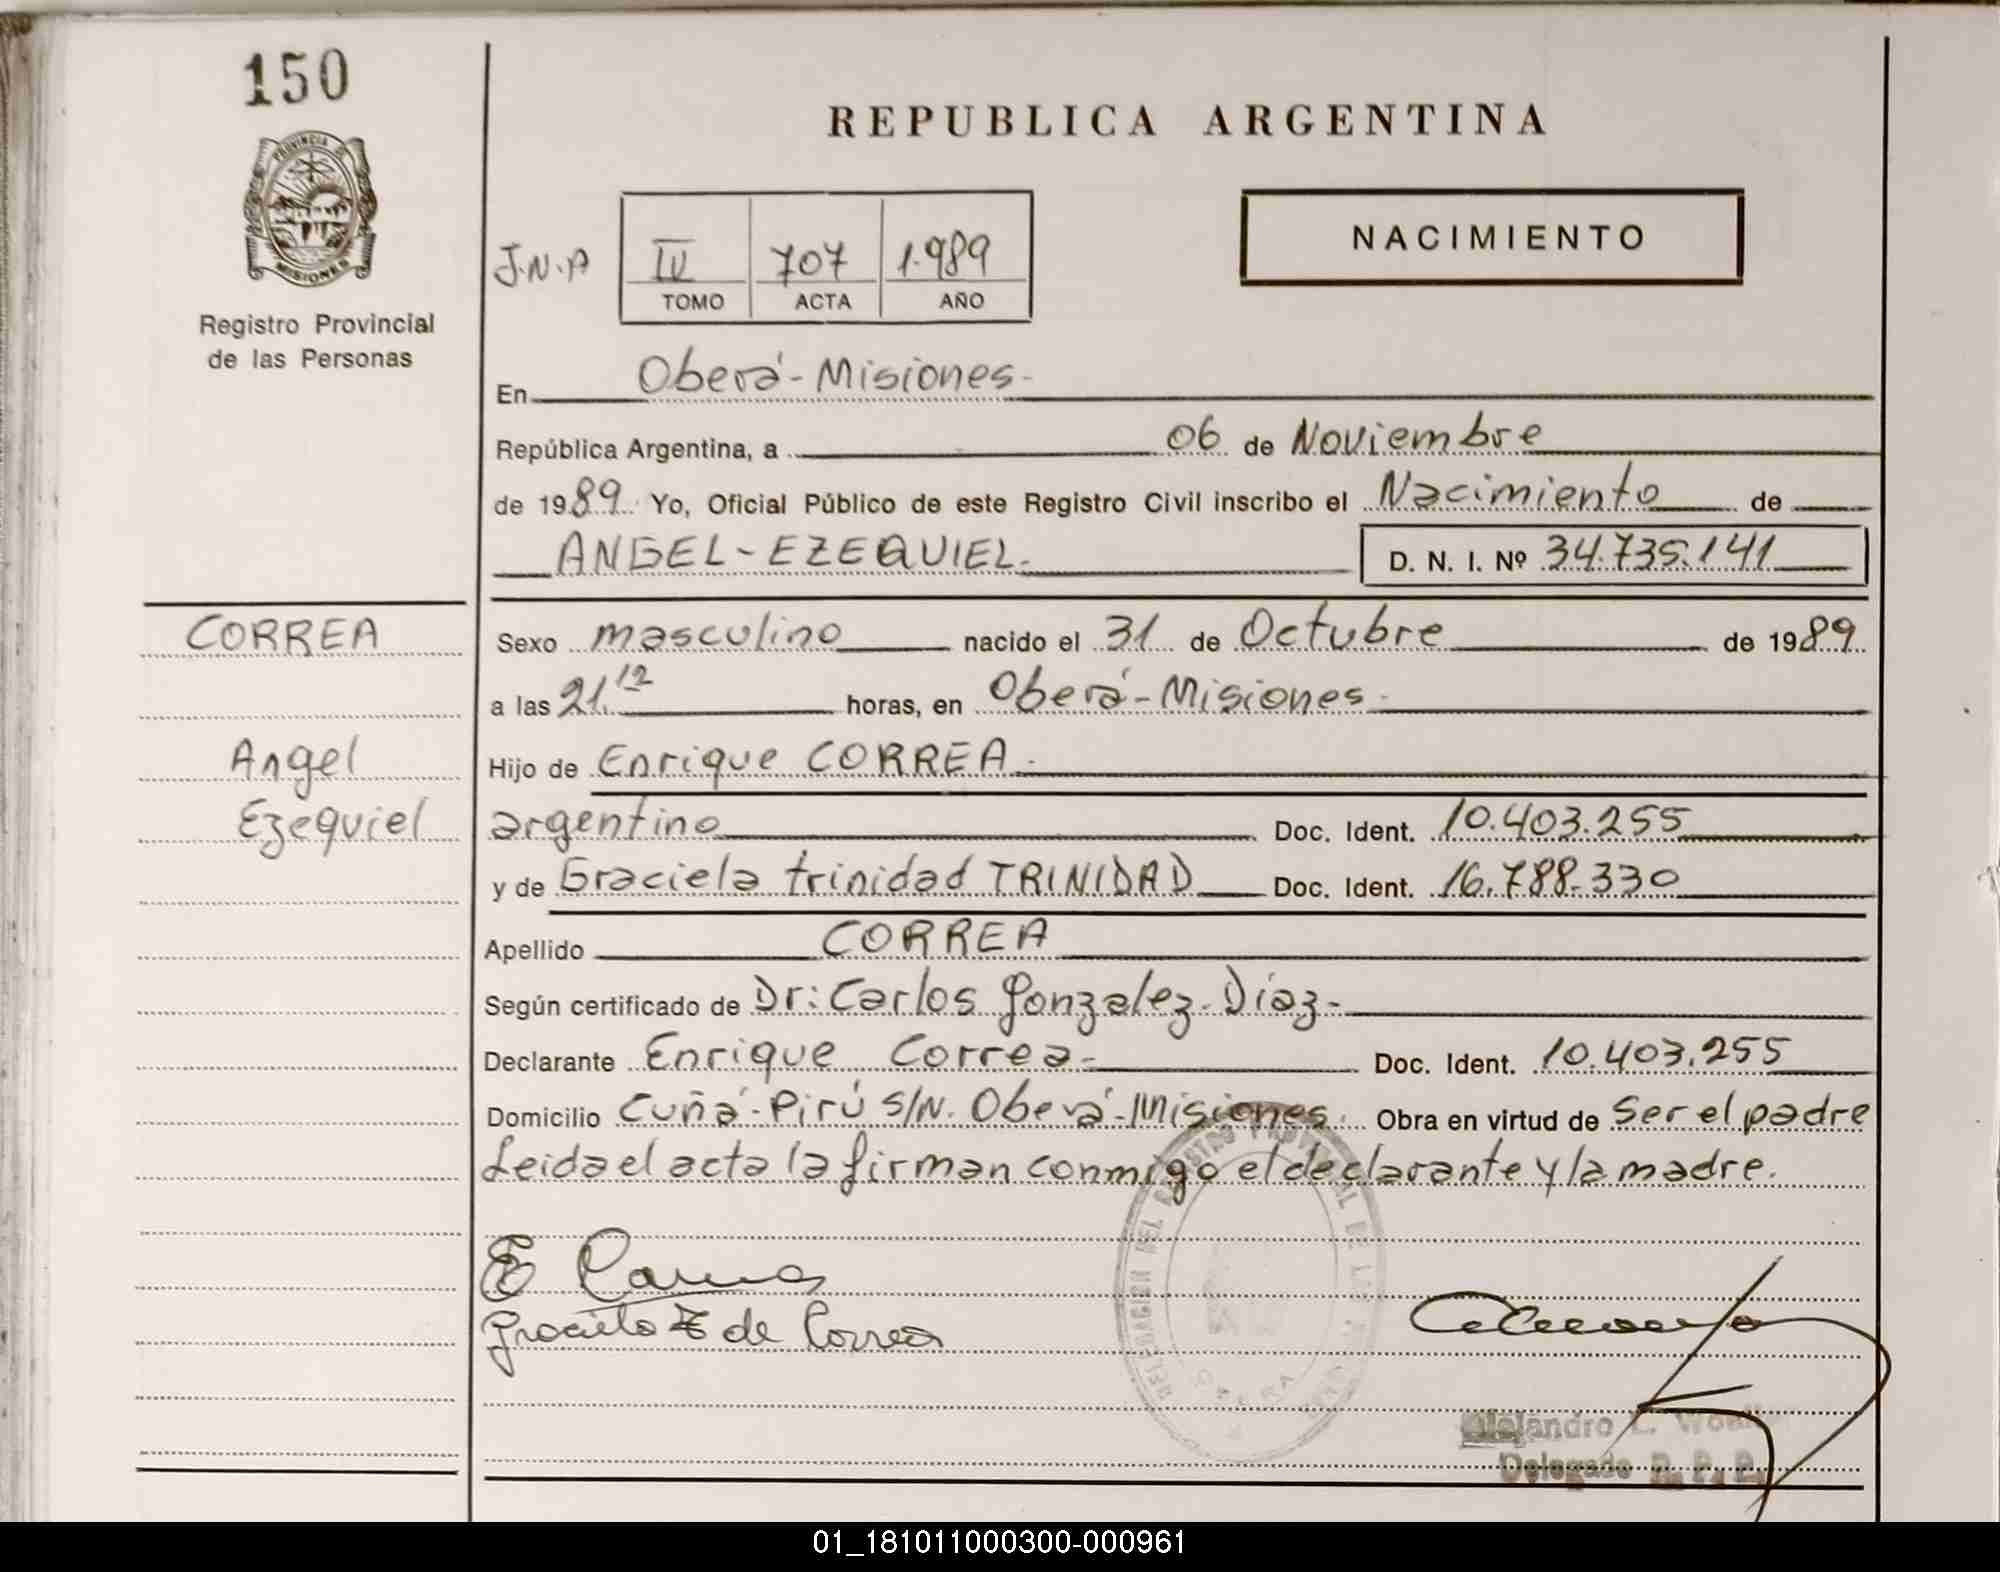 150
PROVINCIA DE
MISIONES
Registro Provincial
de las Personas
REPUBLICA ARGENTINA
NACIMIENTO
J.N.A
IV 707 1.989
TOMO ACTA AÑO
En Oberá-Misiones-
República Argentina, a 06 de Noviembre
de 1989. Yo, Oficial Público de este Registro Civil inscribo el Nacimiento de
ANGEL-EZEQUIEL- D. N. I. Nº 34.735.141
CORREA
Angel
Ezequiel
Sexo masculino nacido el 31 de Octubre de 1989.
a las 21.12 horas, en Oberá-Misiones-
Hijo de Enrique CORREA-
argentino Doc. Ident. 10.403.255
y de Graciela trinidad TRINIDAD Doc. Ident. 16.788.330
Apellido CORREA
Según certificado de Dr: Carlos Gonzalez-Díaz-
Declarante Enrique Correa- Doc. Ident. 10.403.255
Domicilio Cuñá-Pirú S/N. Oberá-Misiones. Obra en virtud de Ser el padre
Leida el acta la firman conmigo el declarante y la madre.
DELEGACION DEL REGISTRO PROVINCIAL DE LAS
OBERA
Graciela T de Correa
Alejandro L.
Delegado R. P. P.
01_181011000300-000961